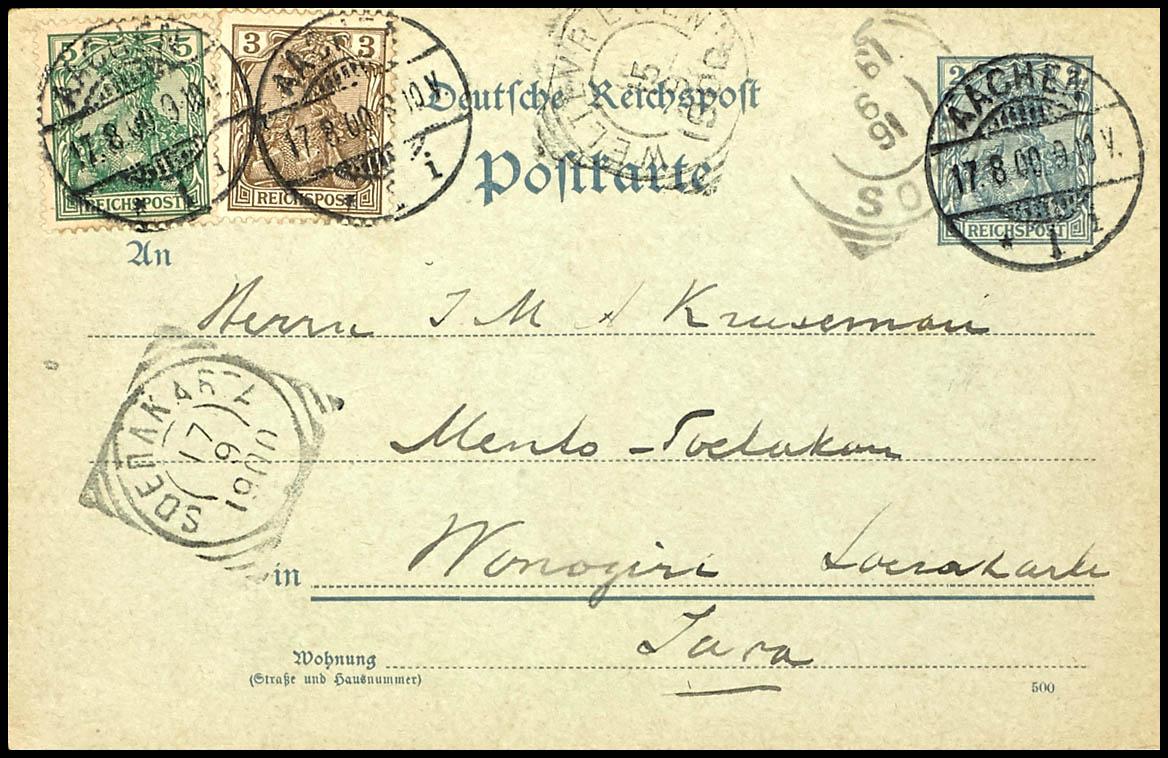 5 5 3 3
REICHSPOST REICHSPOST
AACHEN 17.8.00.9-10V. 1 i
Deutsche Reichspost
Postkarte
WELTEVREDEN 15 9
2 2
REICHSPOST
AACHEN 17.8.00.9-10V. 1 i
An
Herrn J M A Kruseman
SOERAKARTA 17 9 1900
Mento - Toelakan
in Wonogiri Soerakarta
Java
Wohnung
(Straße und Hausnummer)
500